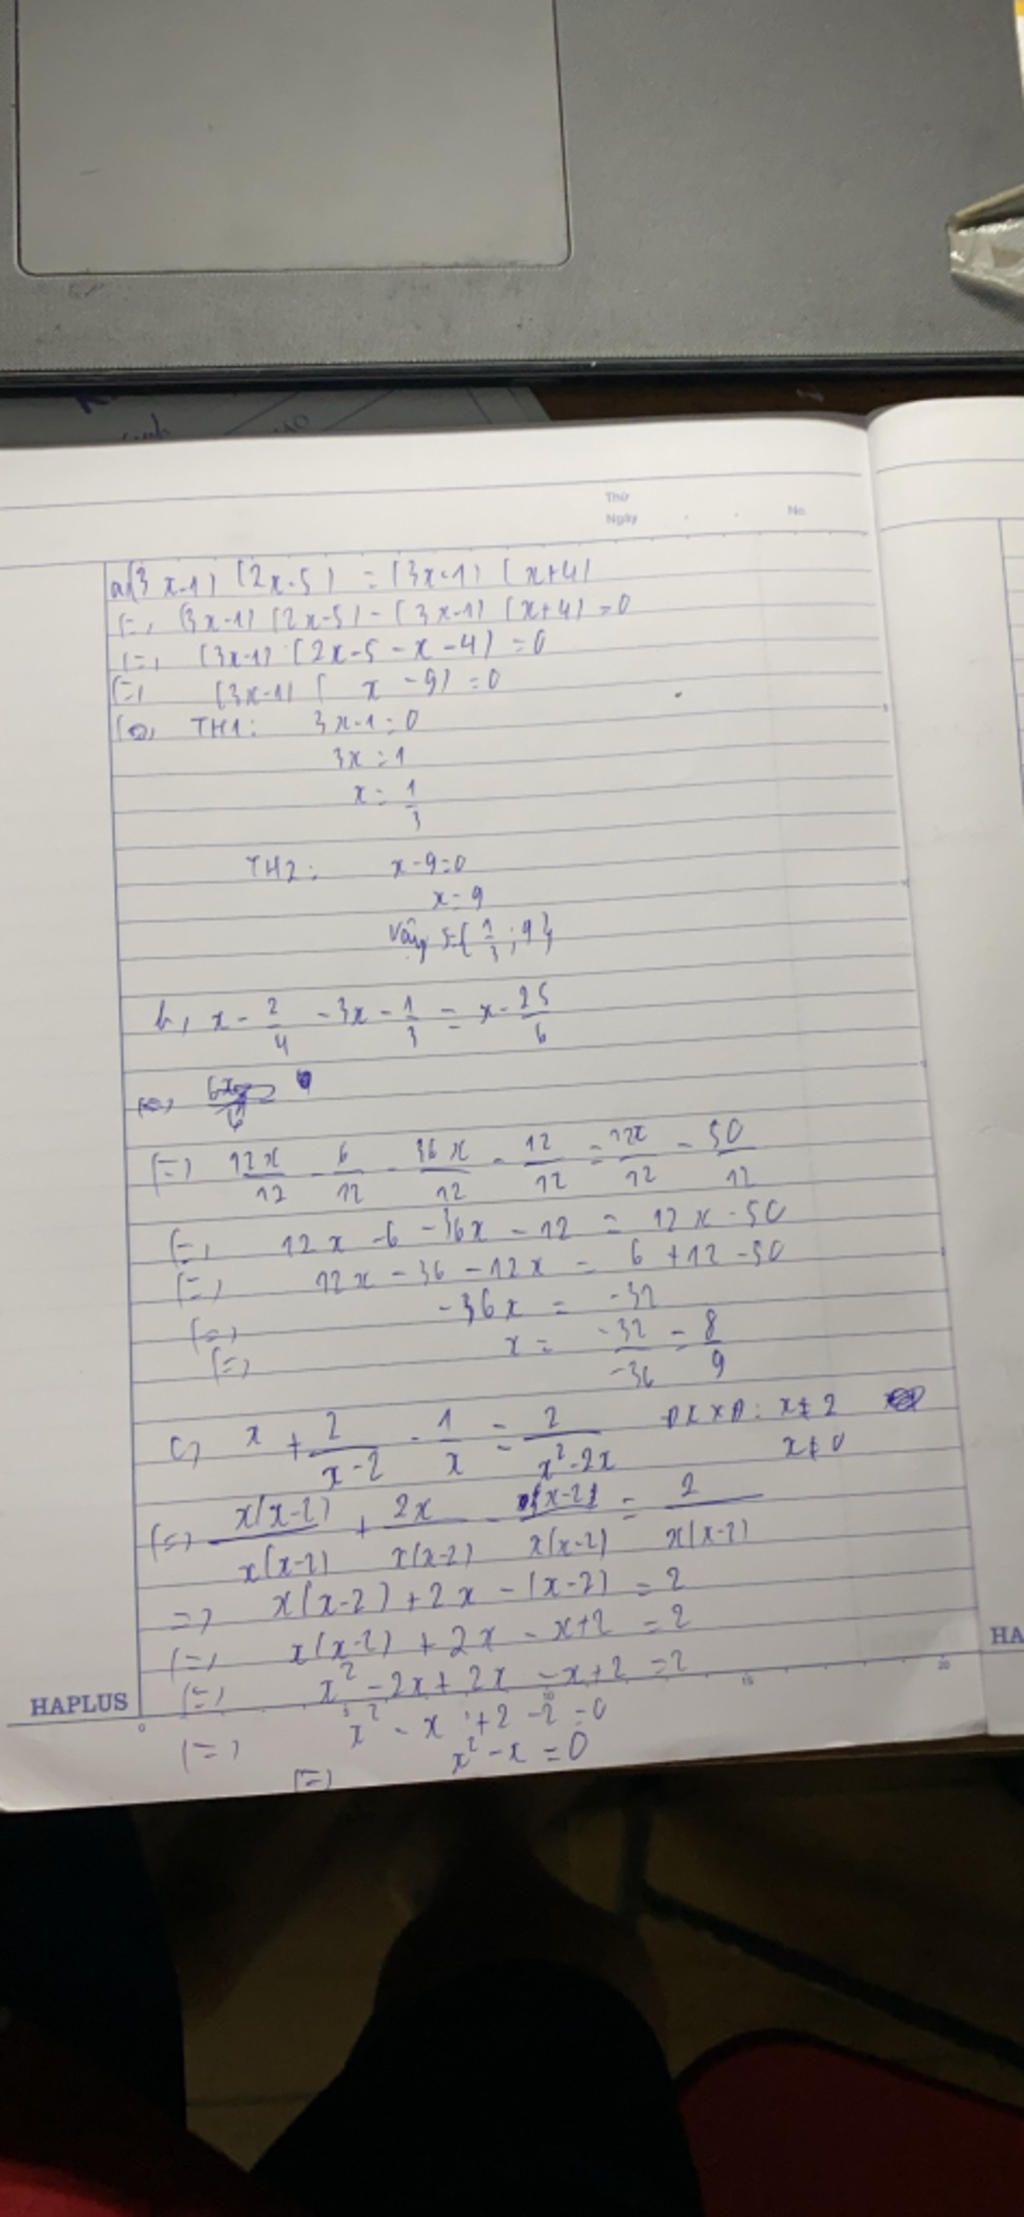 Thứ
Ngày . . No.
a, (3x-1) (2x-5) = (3x-1) (x+4)
(=) (3x-1) (2x-5) - (3x-1) (x+4) = 0
(=) (3x-1) (2x-5-x-4) = 0
(=) (3x-1) ( x -9) = 0
(=) TH1: 3x-1=0
3x = 1
x = 1/3
TH2: x-9=0
x = 9
Vậy S={1/3; 9}
b, x - 2/4 - 3x - 1/3 = x - 25/6
(=)
(=) 12x/12 - 6/12 - 36x/12 - 12/12 = 12x/12 - 50/12
(=) 12x - 6 - 36x - 12 = 12x - 50
(=) 12x - 36 - 12x = 6 + 12 - 50
(=) -36x = -32
(=) x = -32/-36 = 8/9
c, x + 2/x-2 - 1/x = 2/x²-2x ĐKXĐ: x≠2
x≠0
(=) x(x-2)/x(x-2) + 2x/x(x-2) - (x-2)/x(x-2) = 2/x(x-2)
=> x(x-2) + 2x - (x-2) = 2
(=) x(x-2) + 2x - x+2 = 2
(=) x² - 2x + 2x - x+2 = 2
HAPLUS
0 5 10 15 20
HA
(=) x² - x + 2 - 2 = 0
(=) x² - x = 0